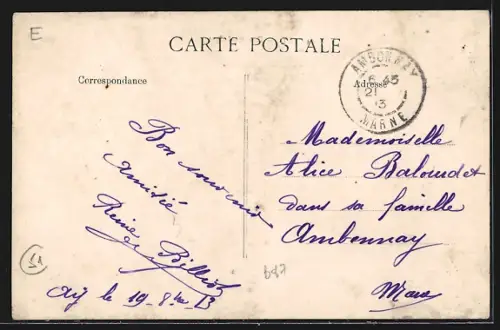 E
CARTE POSTALE
Correspondance
Adresse
AMBONNAY
6 45
21
13
MARNE
Bon souvenir
amitié
Reine Billiot
Aÿ le 19-8bre 13
Mademoiselle
Alice Baloudet
dans sa famille
Ambonnay
Marne
51